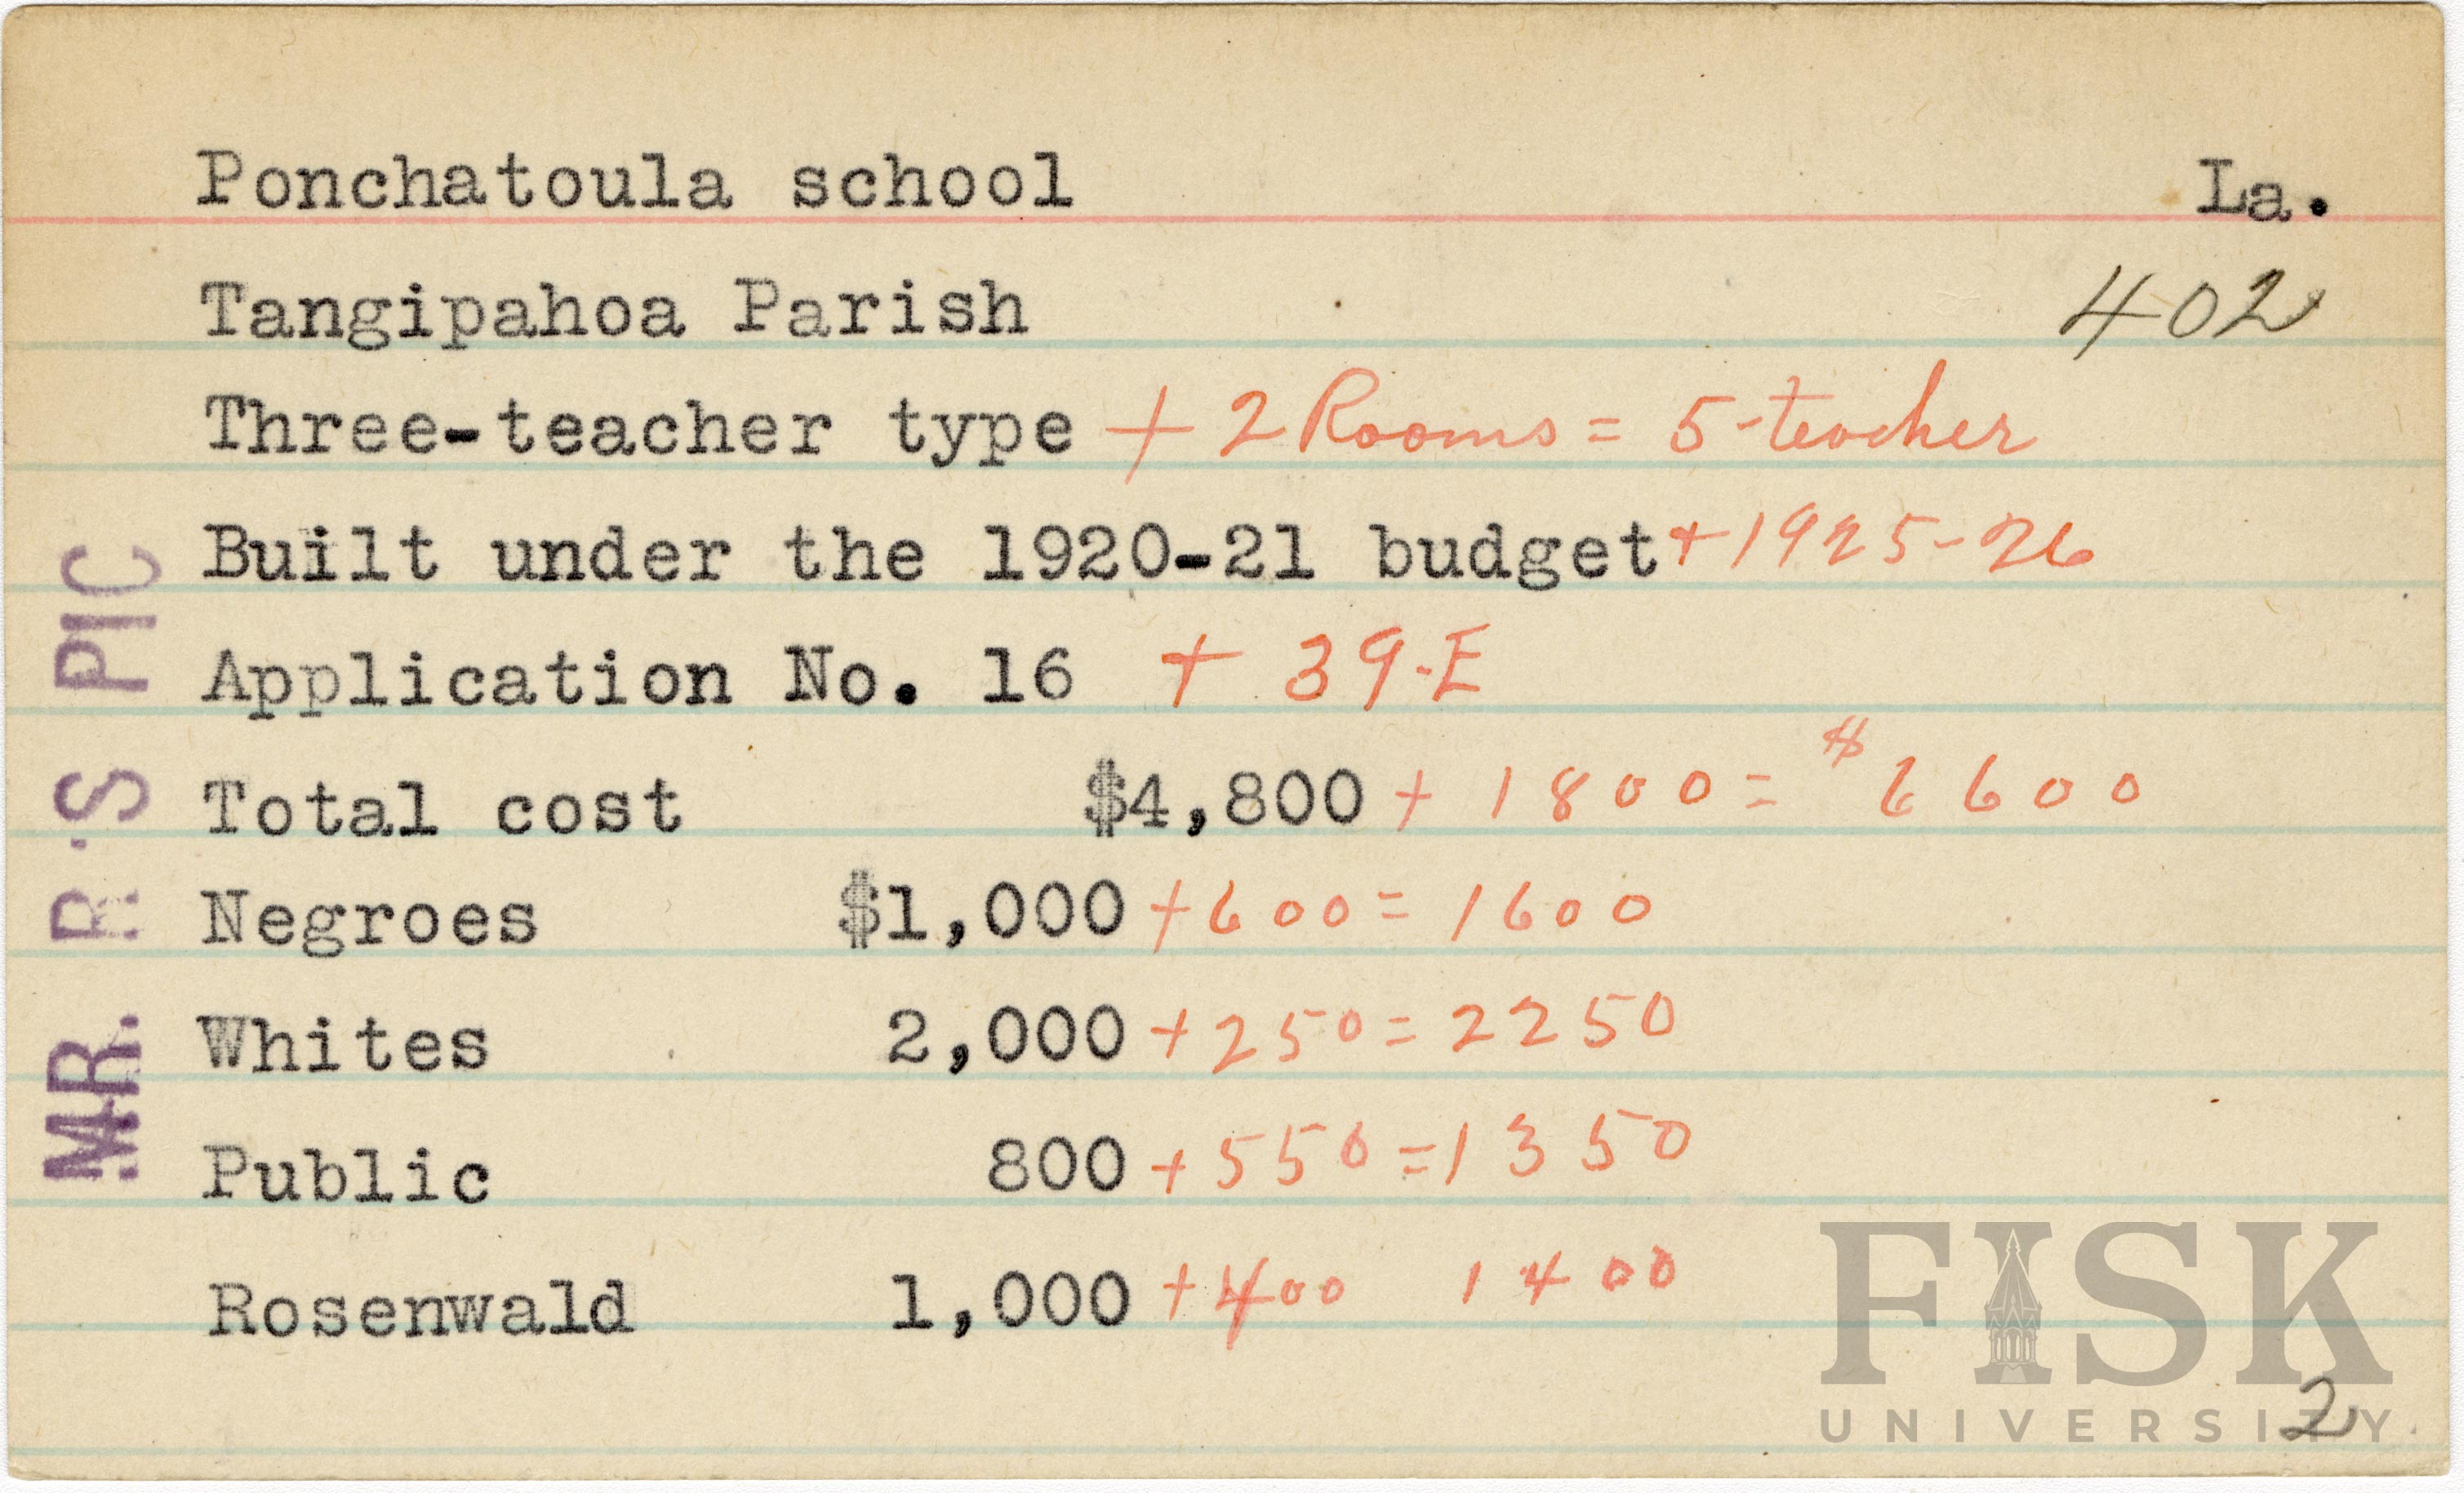 Ponchatoula school La.
Tangipahoa Parish 402
Three-teacher type + 2 Rooms = 5-teacher
Built under the 1920-21 budget + 1925-26
Application No. 16 + 39-E
Total cost $4,800 + 1800 = $6600
Negroes $1,000 + 600 = 1600
Whites 2,000 + 250 = 2250
Public 800 + 550 = 1350
Rosenwald 1,000 + 400 1400
MR. R.S PIC
FISK
UNIVERSITY
2